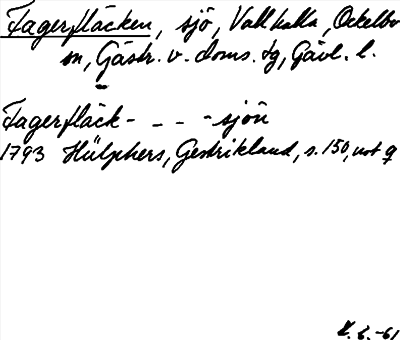 Fagerfläcken, sjö, Vallhalla, Ockelbo
sn, Gästr. v. doms. tg, Gävl. l.
Fagerfläck- - - -sjön
1793 Hülphers, Gestrikland, s. 150, not q